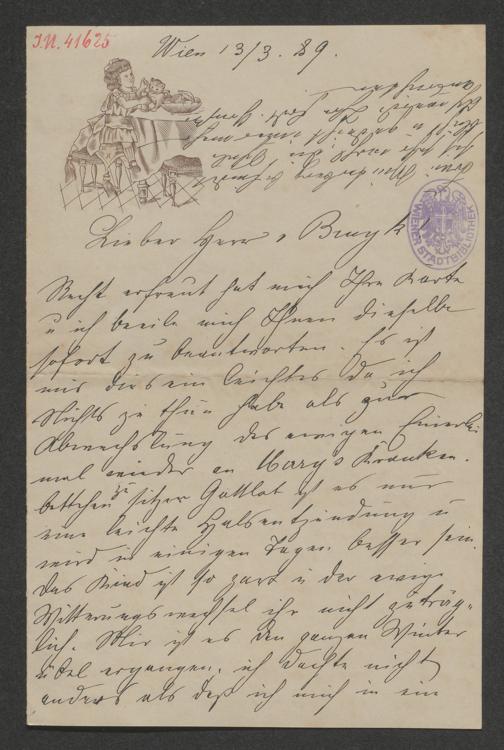 I.N. 41625
Wien 13/3. 89.
WIENER STADTBIBLIOTHEK
Lieber Herr v Bruyk!
Recht erfreut hat mich Ihre Karte
u ich beeile mich Ihnen dieselbe
sofort zu beantworten. Es ist
mir dies ein leichtes da ich
Nichts zu thun habe als zur
Abwechslung des ewigen Einerlei
mal wieder an Marys Kranken-
bettchen zu sitzen Gottlob ist es nur
eine leichte Halsentzündung u
wird in einigen Tagen besser sein.
Das Kind ist so zart u der ewige
Witterungswechsel ihr nicht zuträg-
lich. Mir ist es den ganzen Winter
übel ergangen, ich dachte nicht
anders als daß ich mich in ein